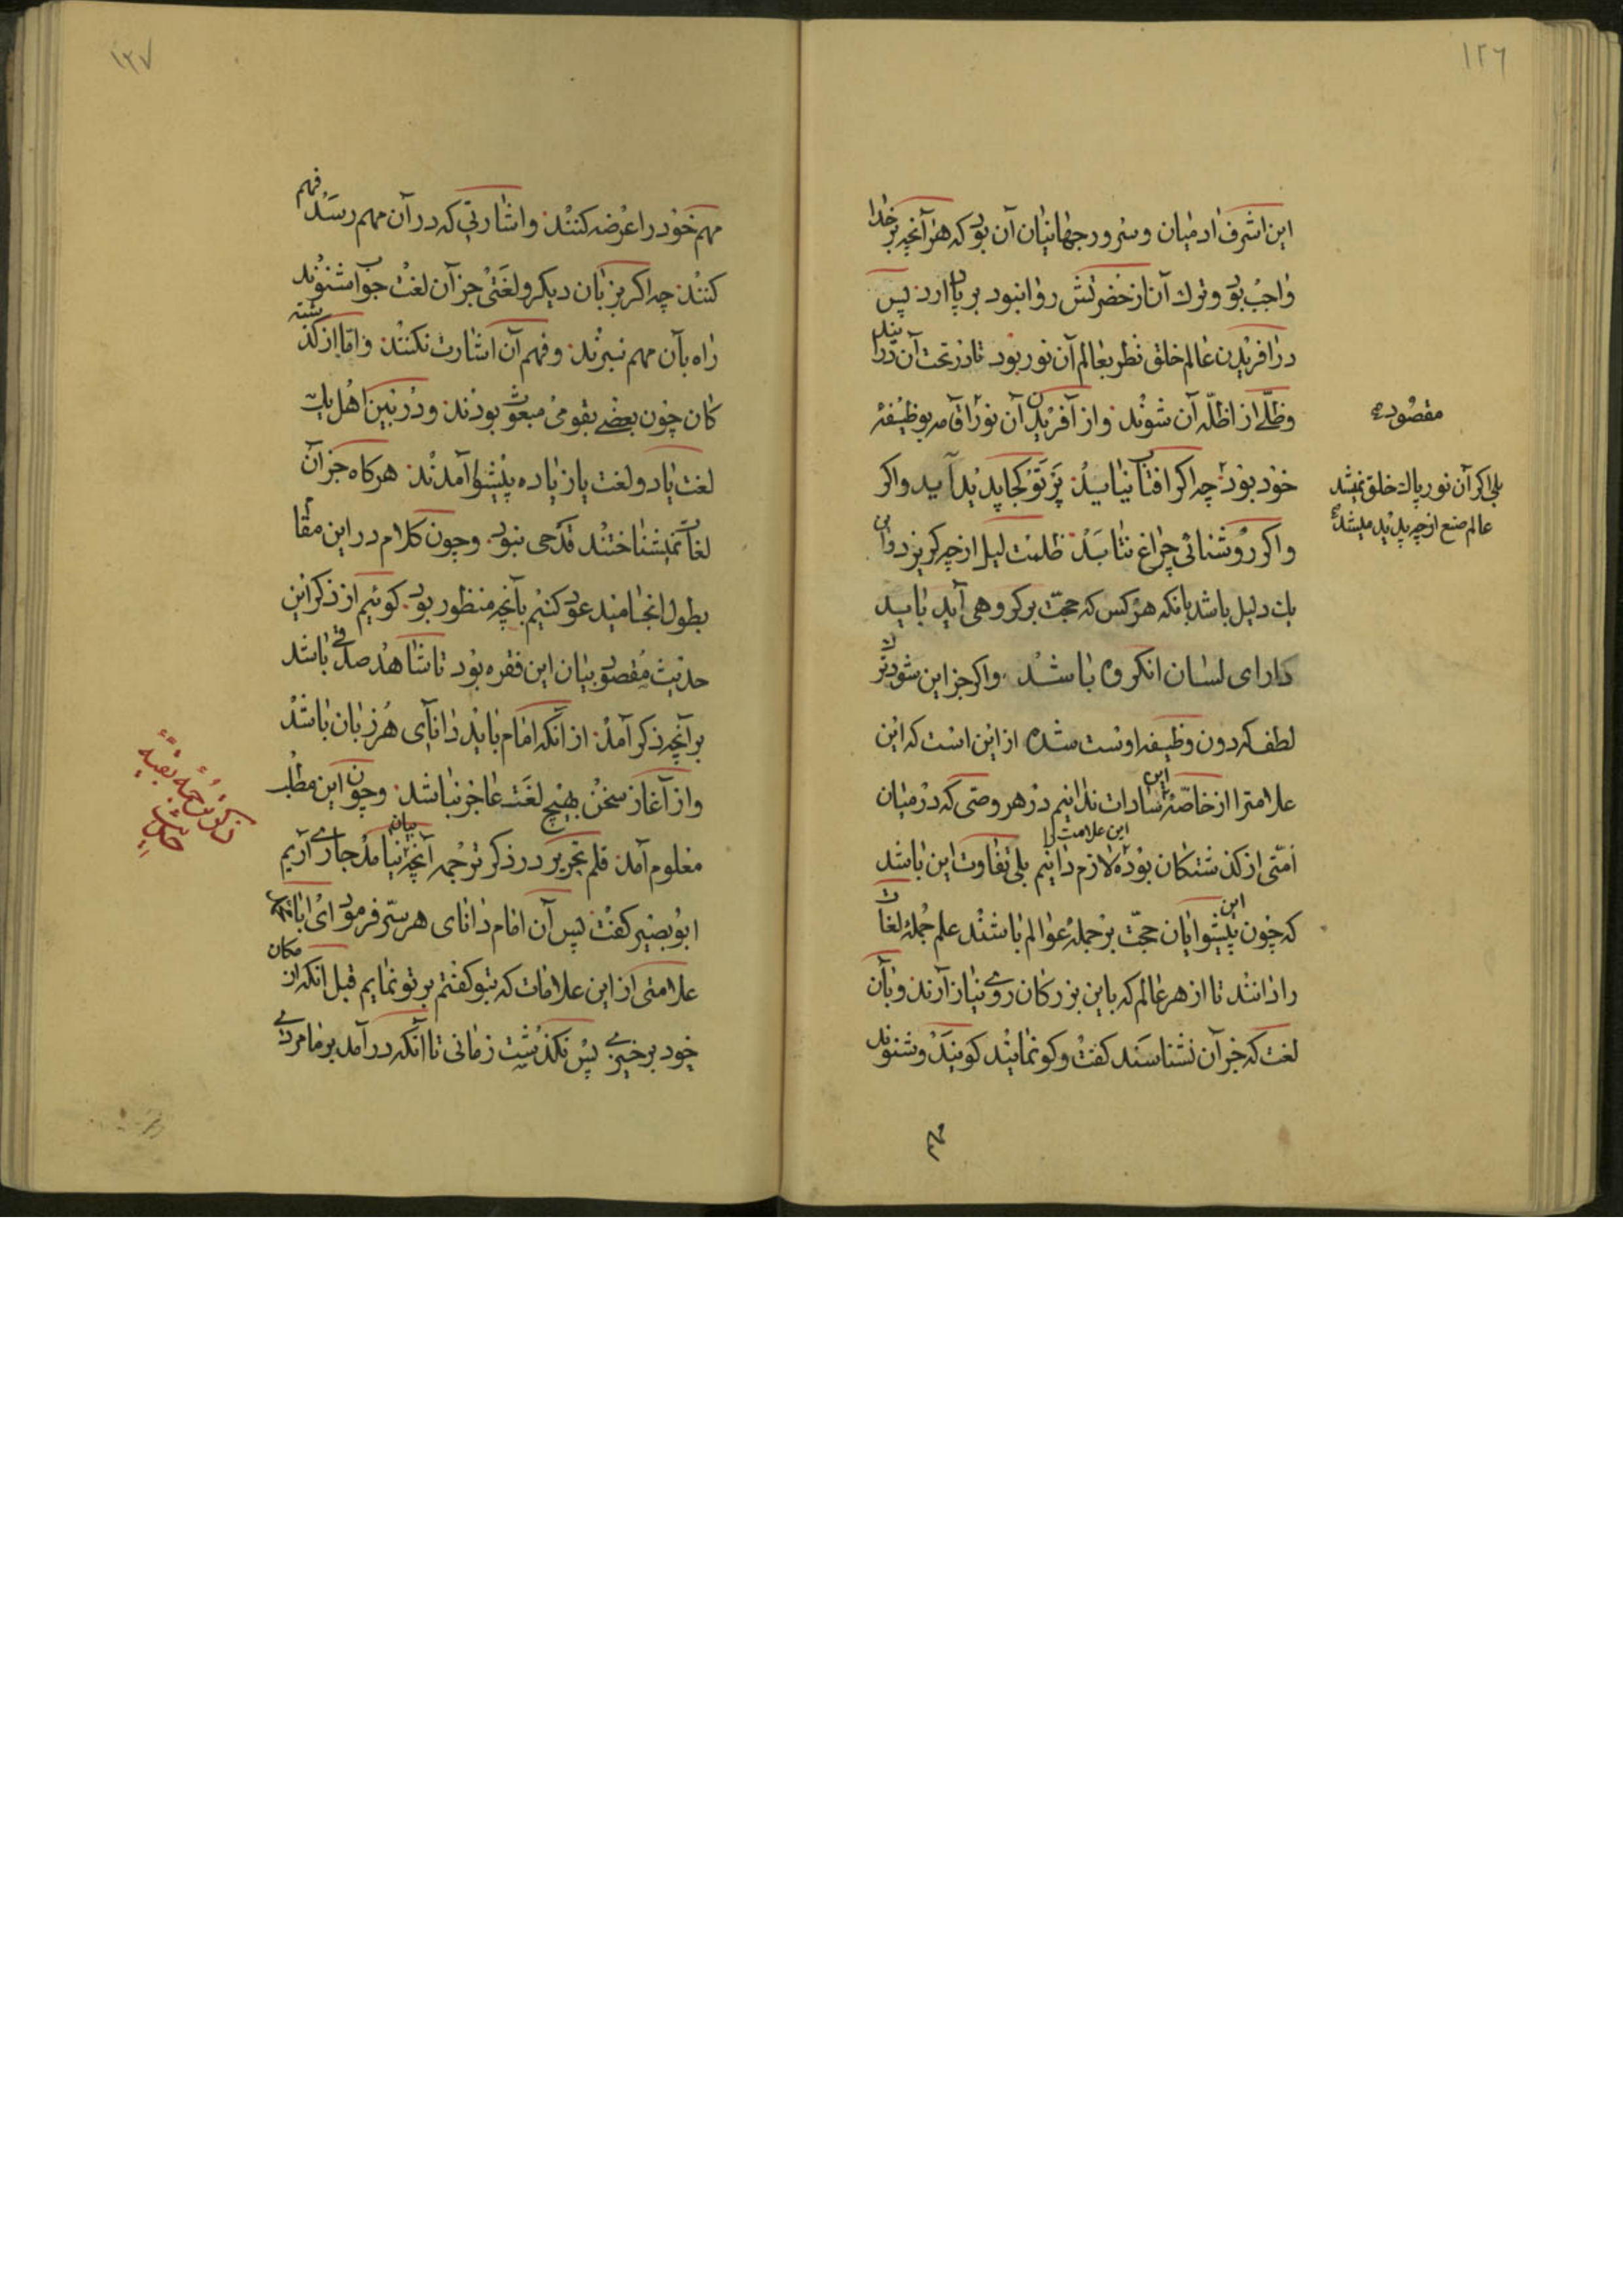 ١٢٦
این اشرف ادمیان و سرور جهانیان آن بود که هر آنچه بر خدا
واجب بود و ترک آن از حضرتش روا نبود بر پا دارد پس
در افریدن عالم خلق نظر بعالم آن نور بود تا در تحت آن در ایند
وظلّے از اظلّه آن شوند و از آفریدن آن نور اقامه بوظیفهٔ
خود بود چه اگر افتاب نیاید پرتو کجا پدید آید واکر
واکر روشنائی چراغ نتابد ظلمت لیل از چه کریزد و این
یک دلیل باشد بانکه هر کس که حجّت بر کروهی آید باید
دارای لسان انکروه باشد واکر جز این شود ترک
لطف که دون وظیفه اوست شده از این است که این
علامترا از خاصّهٔ این سادات ندانیم در هر وصّی که در میان
امّتی از کذشتکان بوده این علامت را لازم دانیم بلی تفاوت این باشد
که چون این پیشوایان حجّت بر جملهٔ عوالم باشند علم جملهٔ لغات
را دانند تا از هر عالم که باین بزرکان روی نیاز آرند و بآن
لغت که جز آن نشناسند کفت و کو نمایند کویند و شنوند
مهم
مقصود
بلی اکر آن نور پاک خلق نمیشد
عالم صنع از چه پدید میشد
١٢٧
مهم خود را عرضه کنند و اشارتی که در آن مهم رسد فهم
کنند چه اکر بزبان دیکر و لغتی جز آن لغت جواب شنوند
راه بآن مهم نبرند و فهم آن اشارت نکنند و امّا از کذشته
کان چون بعضے بقومی مبعوث بودند و در بین اهل یک
لغت یا دو لغت یا زیاده پیشوا آمدند هرکاه جز آن
لغات نمیشناختند قدحی نبود و چون کلام در این مقام
بطول انجامید عود کنیم بآنچه منظور بود کوئیم از ذکر این
حدیث مقصود بیان این فقره بود تا شاهد صدقی باشد
بر آنچه ذکر آمد از آنکه امام باید دانای هر زبان باشد
و از آغاز سخن بهیچ لغت عاجز نباشد و چون این مطلب
معلوم آمد قلم تحریر در ذکر ترجمه آنچه بیان نیامد جاری آریم
ابو بصیر کفت پس آن امام دانای هر سرّ فرمود ای ابا
علامتی از این علامات که بتو کفتم بر تو نمایم قبل انکه از مکان
خود برخیزی پس نکذشت زمانی تا آنکه در آمد بر ما مردی
ذکر ترجمه بقیه
حدیث